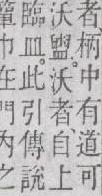 者,柄中有道可
沃盥。沃者自上
臨皿。此引傳說
簞巾在門內之